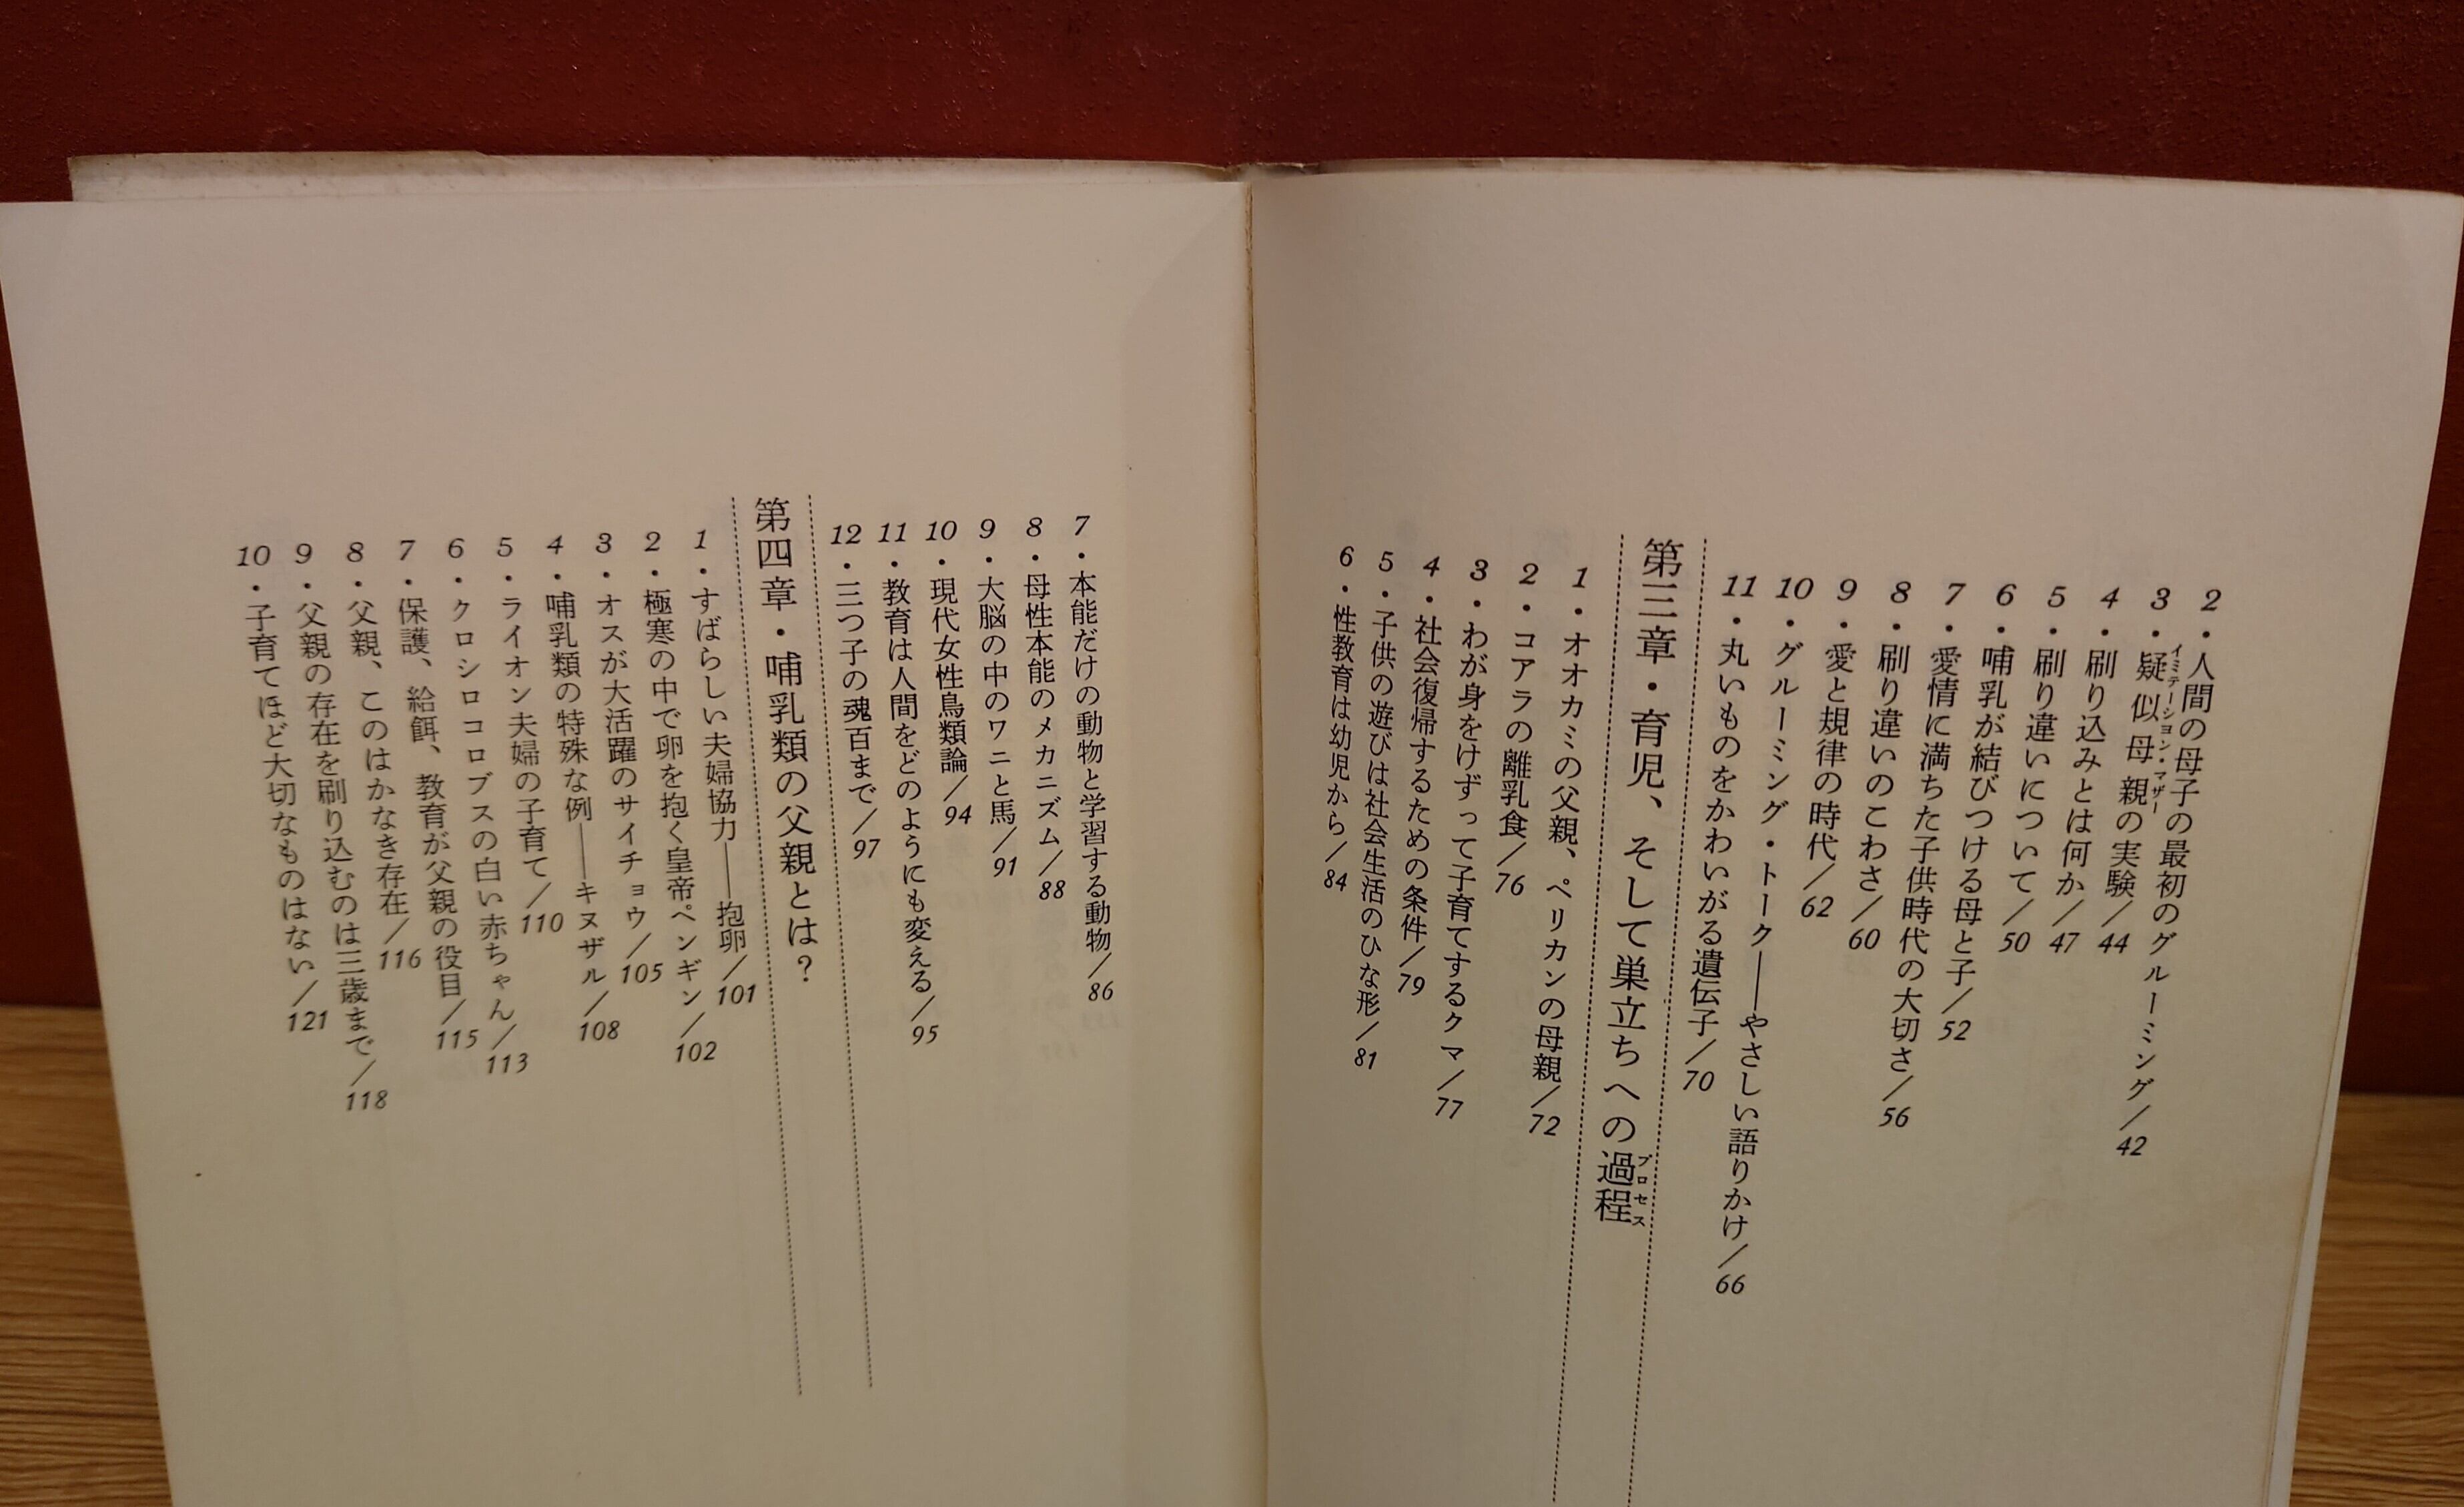 2・人間の母子の最初のグルーミング/42
3・疑似母親の実験/44
イミテーション・マザー
4・刷り込みとは何か/47
5・刷り違いについて/50
6・哺乳が結びつける母と子/52
7・愛情に満ちた子供時代の大切さ/56
8・刷り違いのこわさ/60
9・愛と規律の時代/62
10・グルーミング・トーク――やさしい語りかけ/66
11・丸いものをかわいがる遺伝子/70
第三章・育児、そして巣立ちへの過程
プロセス
1・オオカミの父親、ペリカンの母親/72
2・コアラの離乳食/76
3・わが身をけずって子育てするクマ/77
4・社会復帰するための条件/79
5・子供の遊びは社会生活のひな形/81
6・性教育は幼児から/84
7・本能だけの動物と学習する動物/86
8・母性本能のメカニズム/88
9・大脳の中のワニと馬/91
10・現代女性鳥類論/94
11・教育は人間をどのようにも変える/95
12・三つ子の魂百まで/97
第四章・哺乳類の父親とは?
1・すばらしい夫婦協力――抱卵/101
2・極寒の中で卵を抱く皇帝ペンギン/102
3・オスが大活躍のサイチョウ/105
4・哺乳類の特殊な例――キヌザル/108
5・ライオン夫婦の子育て/110
6・クロシロコロブスの白い赤ちゃん/113
7・保護、給餌、教育が父親の役目/115
8・父親、このはかなき存在/116
9・父親の存在を刷り込むのは三歳まで/118
10・子育てほど大切なものはない/121